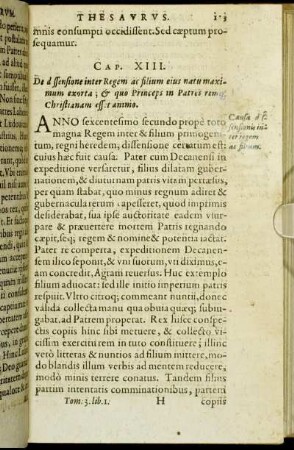 THESAVRVS.
mnis consumpti occidissent. Sed cæptum pro-
sequamur.
CAP. XIII.
De dissensione inter Regem ac filium eius natu maxi-
mum exorta; & quo Princeps in Patres
Christianam esset animo.
Causa
ac filium.
ANNO sexcentesimo secundo propè toto
magna Regem inter & filium primogeni-
tum, regni heredem, dissensione certatum est:
cuius hæc fuit causa. Pater cum Decanensi in
expeditione versaretur, filius dilatam guber-
nationem, & diuturnam patris vitam pertæsus,
per quam stabat, quo minus regnum adiret &
gubernacula rerum capesseret, quod imprimis
desiderabat, sua ipse auctoritate eadem vsur-
pare & præuertere mortem Patris regnando
cæpit, seq; regem & nomine & potentia iactat.
Pater re comperta, expeditionem Decanen-
sem ilico seponit, & vni suorum, vti diximus, e-
am concredit, Agram reuersus. Huc extemplo
filium aduocat: sed ille initio imperium patris
respuit. Vltro citroq; commeant nuntii, donec
valida collecta manu qua obuia quæq; subiu-
gabat, ad Patrem properat. Rex iusee conspe-
ctis copiis hinc sibi metuere, & collecto vi-
cissim exercitu rem in tuto constituere; illinc
verò litteras & nuntios ad filium mittere, mo-
do blandis illum verbis ad mentem reducere,
modò minis terrere conatus. Tandem filius
partim intentatis comminationibus, partim
Tom. 3. lib. 1. H copiis